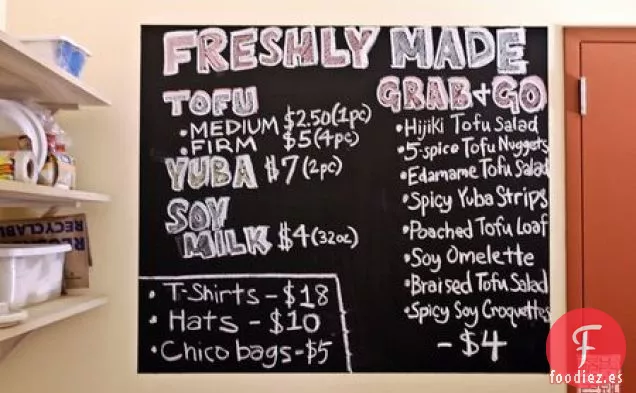 FRESHLY MADE
TOFU
• MEDIUM $2.50 (1pc)
• FIRM $5 (4pc)
YUBA $7 (2pc)
SOY
MILK $4 (32oz)
• T-Shirts - $18
• Hats - $10
• Chico bags - $5
GRAB + GO
• Hijiki Tofu Salad
• 5-spice Tofu Nuggets
• Edamame Tofu Salad
• Spicy Yuba Strips
• Poached Tofu Loaf
• Soy Omelette
• Braised Tofu Salad
• Spicy Soy Croquettes
- $4
RECYCLABLE
F
foodiez.es